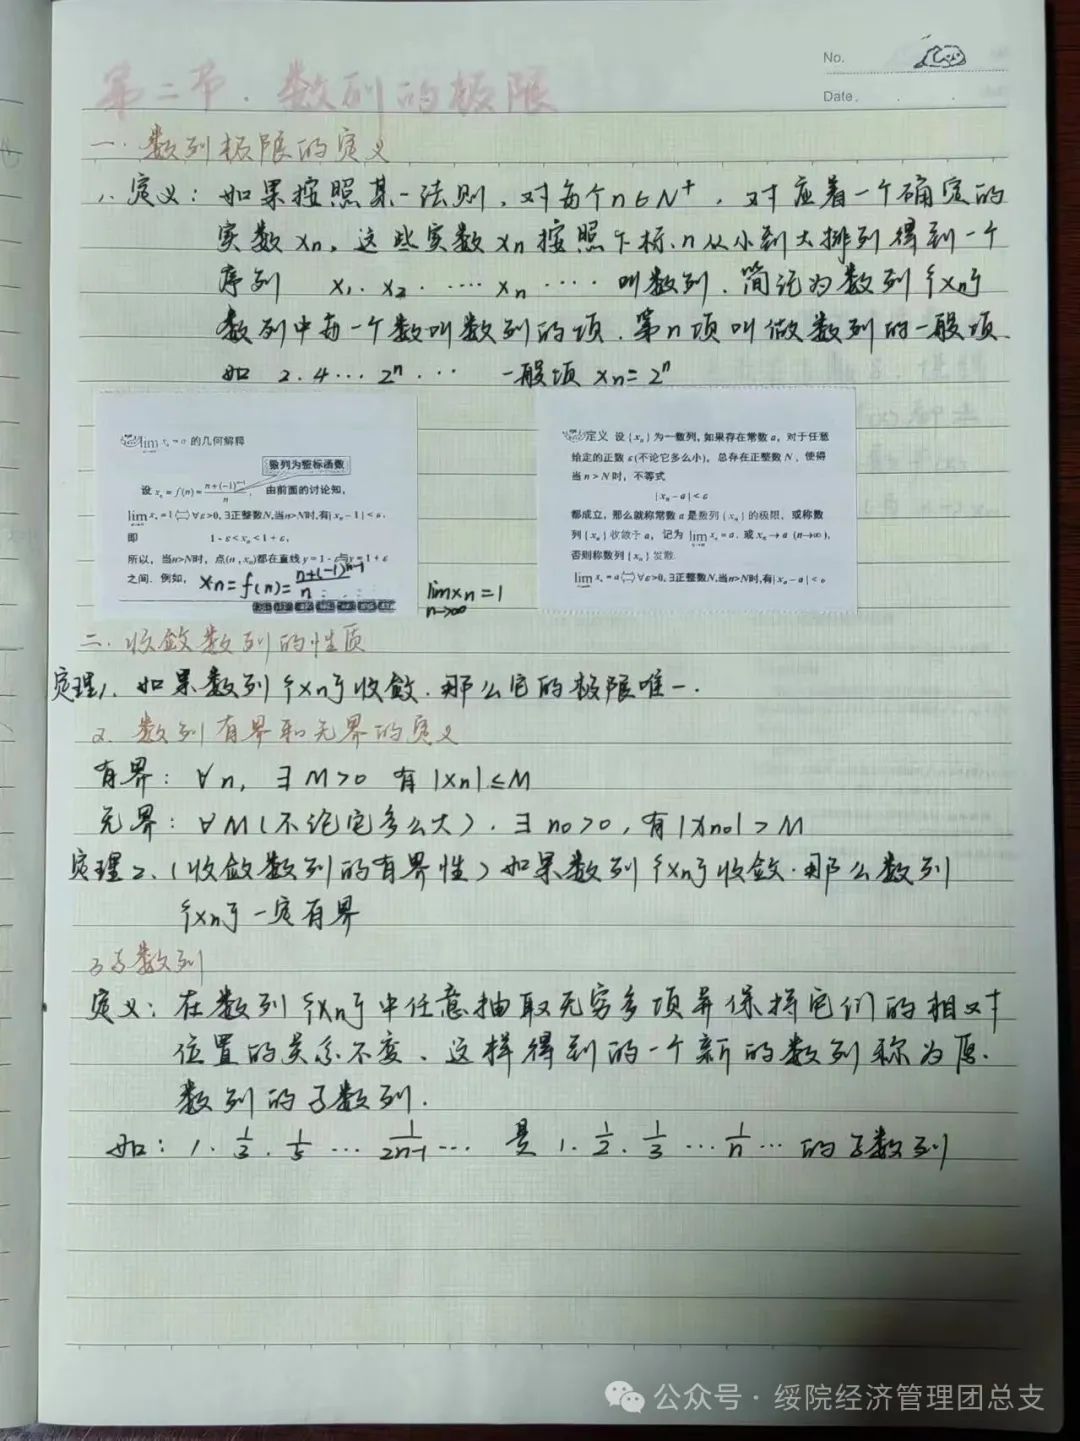 No.
Date.
第二节. 数列的极限
一. 数列极限的定义
1. 定义: 如果按照某一法则, 对每个n∈N⁺, 对应着一个确定的
实数xn, 这些实数xn按照下标n从小到大排列得到一个
序列 x₁. x₂. …… xn …… 叫数列. 简记为数列{xn}
数列中每一个数叫数列的项. 第n项叫做数列的一般项.
如 2. 4 … 2ⁿ … 一般项 xn = 2ⁿ
lim xₙ = a 的几何解释
数列为整标函数
设 xₙ = f(n) = (n+(-1)ⁿ⁻¹)/n, 由前面的讨论知,
lim xₙ = 1 ⟺ ∀ε>0, ∃正整数N,当n>N时,有|xₙ-1|<ε.
即 1-ε<xₙ<1+ε,
所以, 当n>N时, 点(n, xₙ)都在直线 y=1-ε与y=1+ε
之间. 例如, xn = f(n) = (n+(-1)ⁿ⁻¹)/n
lim xn = 1
n→∞
定义 设{xₙ}为一数列, 如果存在常数 a, 对于任意
给定的正数 ε(不论它多么小), 总存在正整数 N, 使得
当 n>N 时, 不等式
|xₙ-a|<ε
都成立, 那么就称常数 a 是数列{xₙ}的极限, 或称数
列{xₙ}收敛于 a, 记为 lim xₙ=a. 或 xₙ→a (n→∞),
否则称数列{xₙ}发散.
lim xₙ=a ⟺ ∀ε>0, ∃正整数N,当n>N时,有|xₙ-a|<ε
二. 收敛数列的性质
定理1. 如果数列{xn}收敛. 那么它的极限唯一.
2. 数列有界和无界的定义
有界: ∀n, ∃M>0 有|xn|≤M
无界: ∀M(不论它多么大). ∃n₀>0, 有|xn₀|>M
定理2. (收敛数列的有界性) 如果数列{xn}收敛. 那么数列
{xn}一定有界
3 子数列
定义: 在数列{xn}中任意抽取无穷多项并保持它们的相对
位置的关系不变、这样得到的一个新的数列称为原.
数列的子数列.
如: 1. 1/3. 1/5 … 1/(2n-1) … 是 1. 1/2. 1/3 … 1/n … 的子数列
公众号 · 绥院经济管理团总支